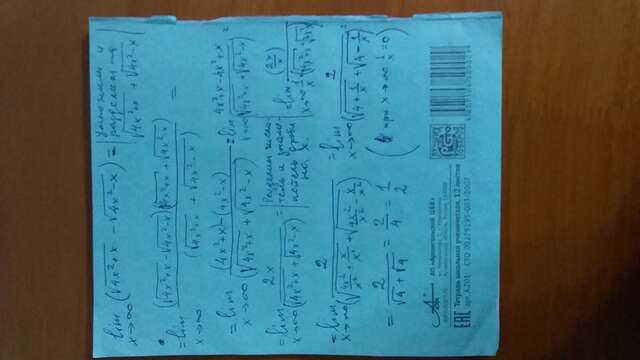 lim x→∞ (√4x²+x - √4x²-x) = | умножим и разделим на √4x²+x + √4x²-x |
= lim x→∞ (√4x²+x - √4x²-x)(√4x²+x + √4x²-x) / (√4x²+x + √4x²-x) =
= lim x→∞ (4x²+x)-(4x²-x) / (√4x²+x + √4x²-x) = lim x→∞ 4x²+x-4x²+x / (√4x²+x + √4x²-x) =
= lim x→∞ 2x / (√4x²+x + √4x²-x) = | Разделим числитель и знаменатель дроби на x. | = lim x→∞ (2x/x) / 1/x (√4x²+x + √4x²-x)
= lim x→∞ 2 / (√4x²/x²+x/x² + √4x²/x²-x/x²) = lim x→∞ 2 / (√4+1/x + √4-1/x) =
= 2 / √4+√4 = 2/4 = 1/2 ( при x→∞ 1/x = 0 )
АО «Архангельский ЦБК»
ЛУЧШИХ
ТОВАРОВ
EAC Тетрадь школьная ученическая, 12 листов
арт. AZ01 СТО 00279195-003-2007